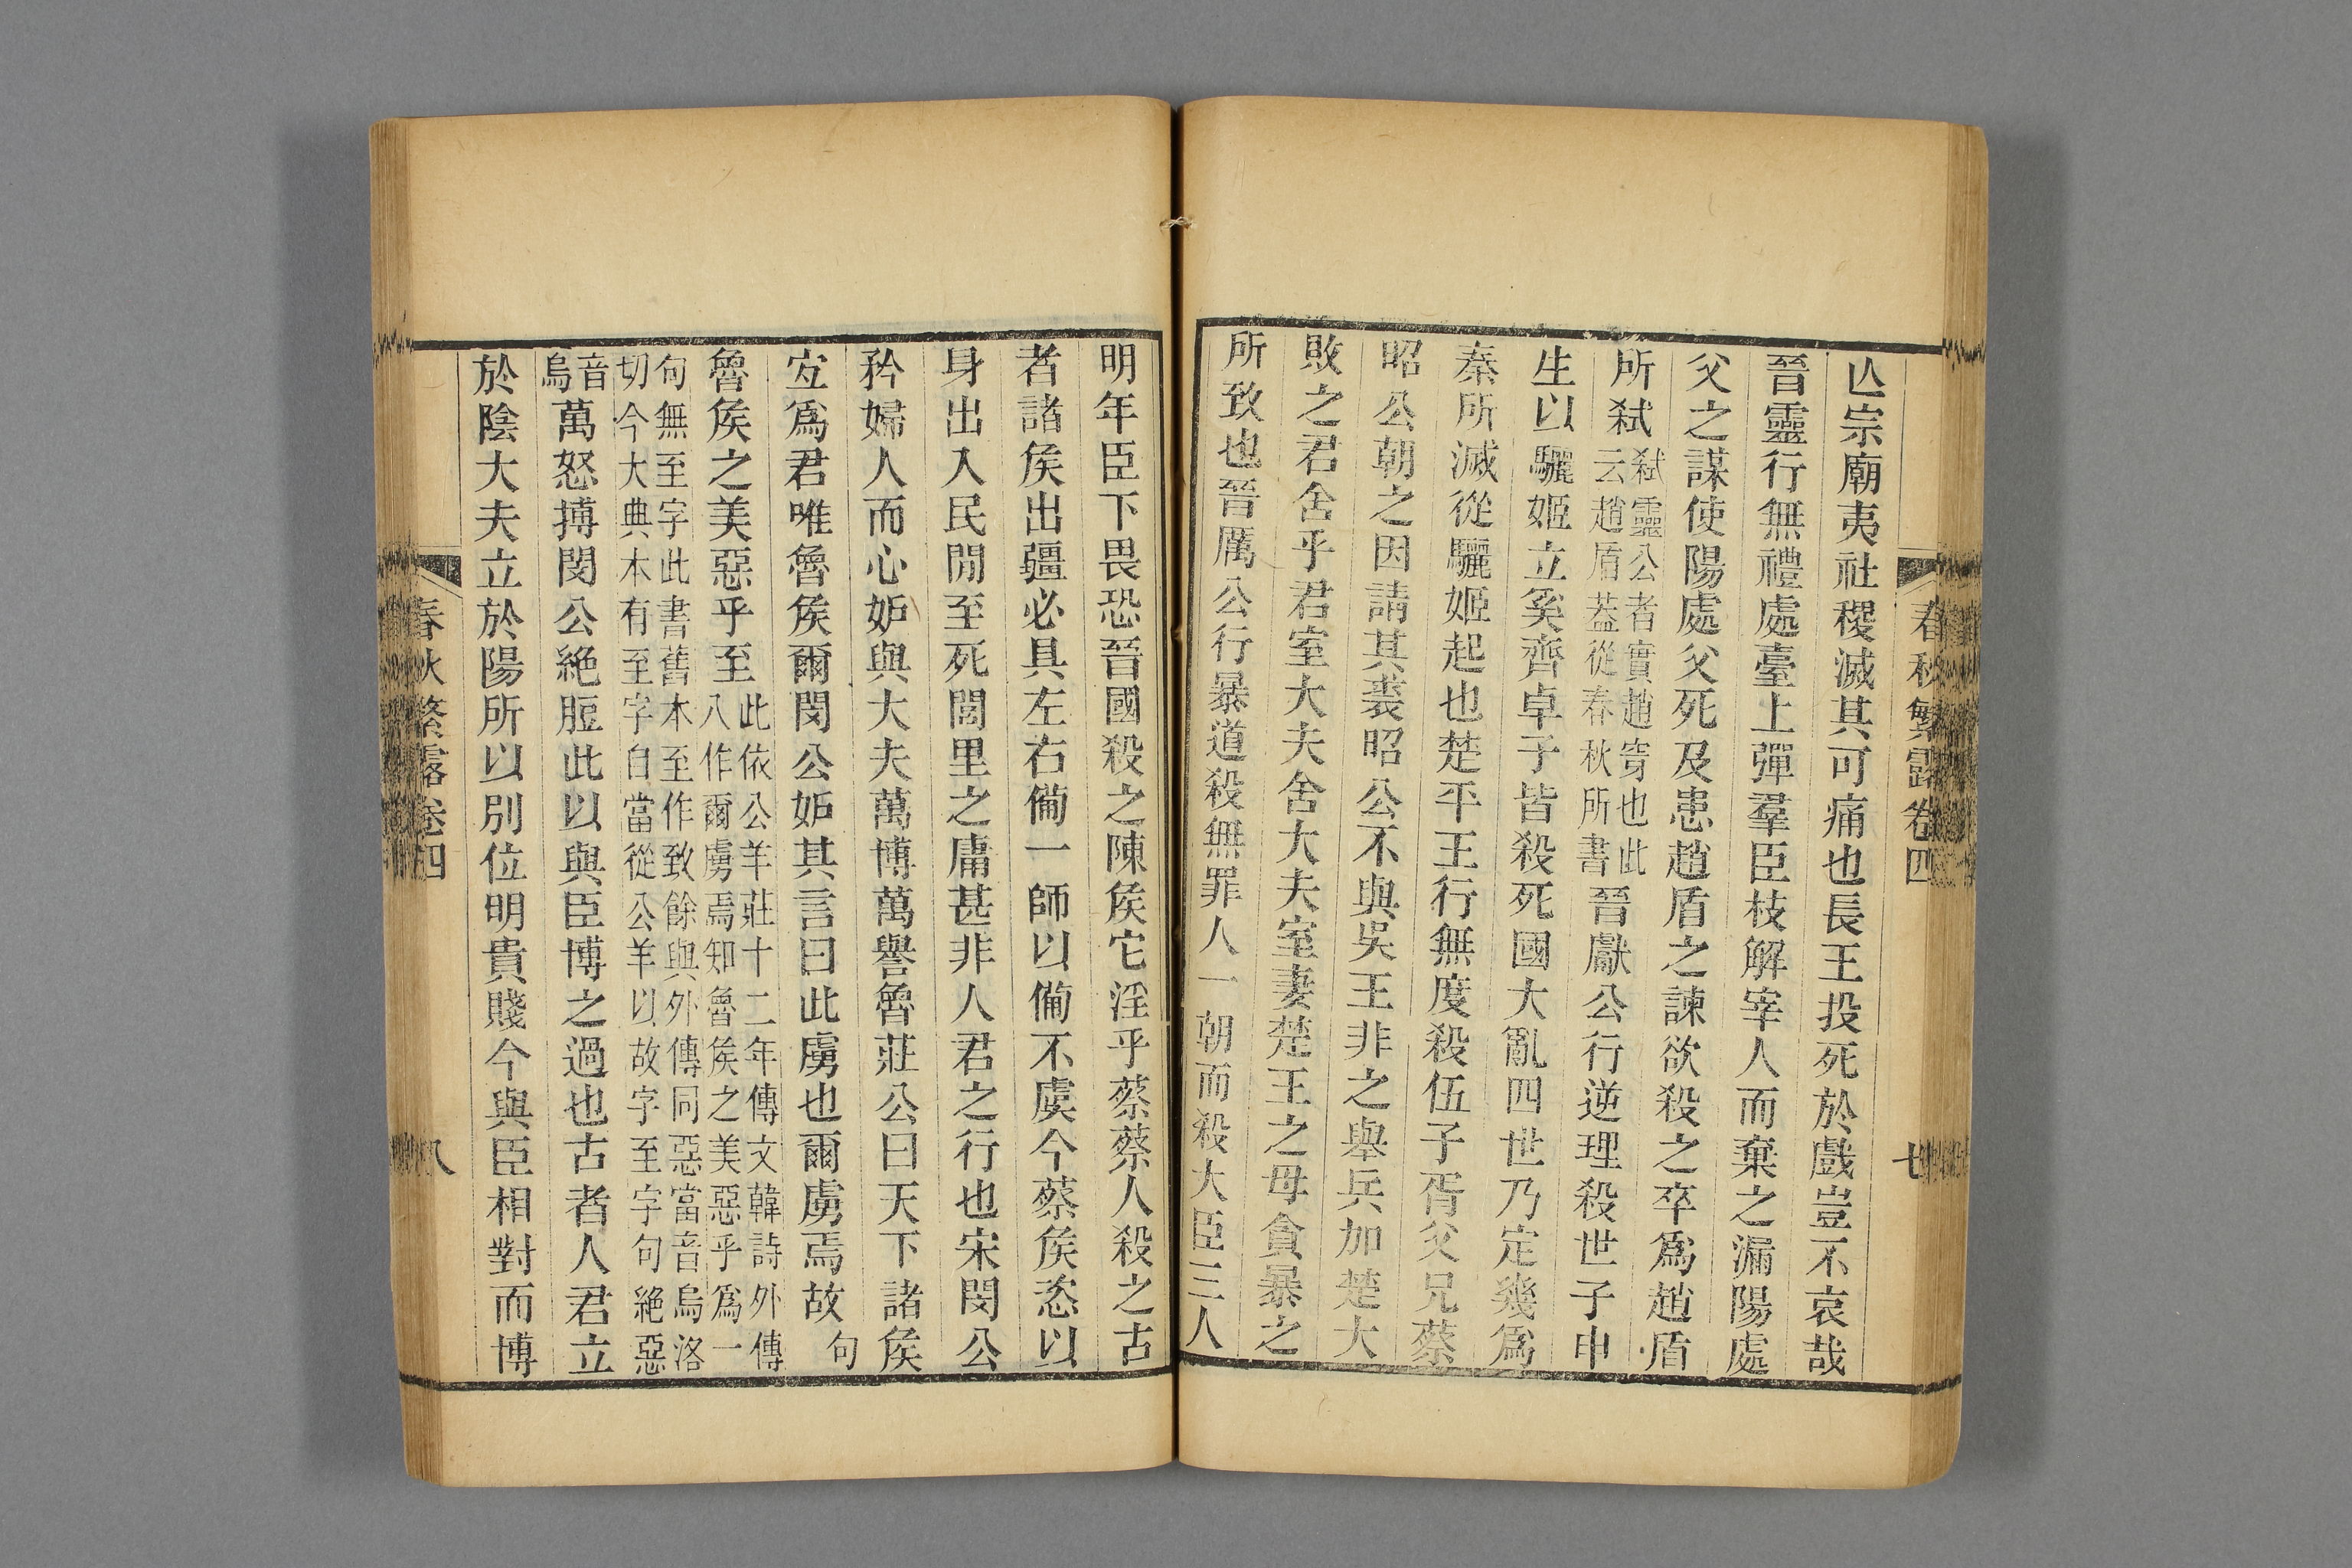 春秋繁露卷四
七
亾宗廟夷社稷滅其可痛也長王投死於戲豈不哀哉
晉靈行無禮處臺上彈羣臣枝解宰人而棄之漏陽處
父之謀使陽處父死及患趙盾之諫欲殺之卒爲趙盾
所弑弑靈公者實趙穿也此云趙盾葢從春秋所書晉獻公行逆理殺世子申
生以驪姬立奚齊卓子皆殺死國大亂四世乃定幾爲
秦所滅從驪姬起也楚平王行無度殺伍子胥父兄蔡
昭公朝之因請其裘昭公不與吳王非之舉兵加楚大
敗之君舍乎君室大夫舍大夫室妻楚王之母貪暴之
所致也晉厲公行暴道殺無罪人一朝而殺大臣三人
明年臣下畏恐晉國殺之陳矦它淫乎蔡蔡人殺之古
者諸矦出疆必具左右僃一師以僃不虞今蔡矦恣以
身出入民閒至死閭里之庸甚非人君之行也宋閔公
矜婦人而心妒與大夫萬博萬譽魯莊公曰天下諸矦
宐爲君唯魯矦爾閔公妒其言曰此虜也爾虜焉故句
魯矦之美惡乎至此依公羊莊十二年傳文韓詩外傳八作爾虜焉知魯矦之美惡乎爲一
句無至字此書舊本至作致餘與外傳同惡當音烏洛切今大典本有至字自當從公羊以故字至字句絶惡
音烏萬怒搏閔公絶脰此以與臣博之過也古者人君立
於陰大夫立於陽所以別位明貴賤今與臣相對而博
春秋繁露卷四
八